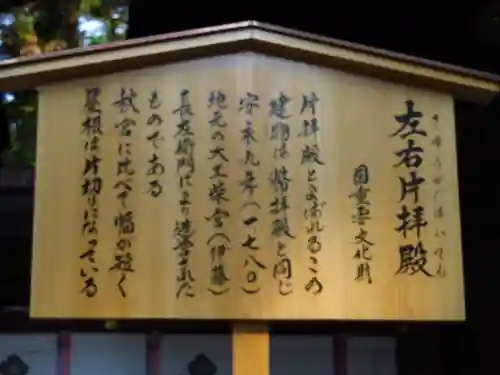 左右片拝殿
さゆうかたはいでん
国重要文化財
片拝殿とよばれるこの
建物は幣拝殿と同じ
安永九年（一七八〇）
地元の大工柴宮（伊藤）
長左衛門により造営された
ものである
秋宮に比べて幅が短く
屋根は片切りになっている